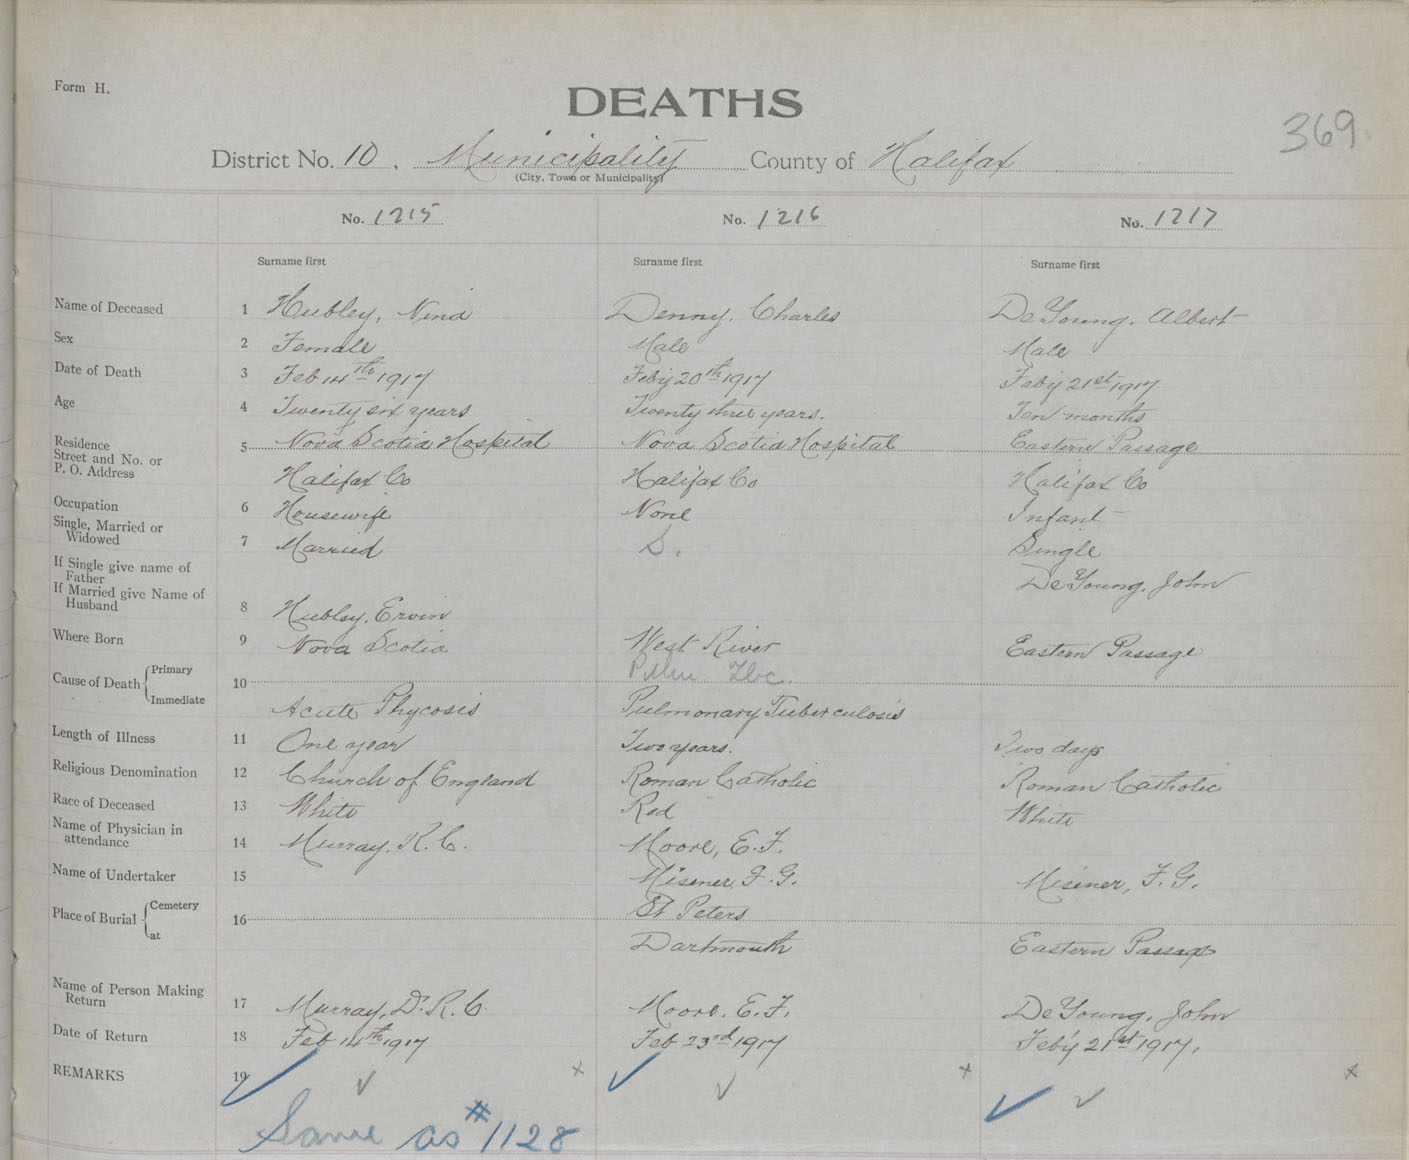 Form H.
DEATHS
369
District No. 10, Municipality County of Halifax
(City, Town or Municipality)
No. 1215 No. 1216 No. 1217
Surname first Surname first Surname first
Name of Deceased 1 Hubley, Nina Denny, Charles De Young, Albert
Sex 2 Female Male Male
Date of Death 3 Feb 14th 1917 Feby 20th 1917 Feb'y 21st 1917
Age 4 Twenty six years Twenty three years. Ten months
Residence
Street and No. or
P. O. Address
5 Nova Scotia Hospital Nova Scotia Hospital Eastern Passage
Halifax Co Halifax Co Halifax Co
Occupation 6 Housewife None Infant
Single, Married or
Widowed
7 Married S. Single
If Single give name of
Father
De Young, John
If Married give Name of
Husband
8 Hubley, Ervin
Where Born 9 Nova Scotia West River Eastern Passage
Cause of Death Primary 10 Pulm. Tbc.
Immediate Acute Phycosis Pulmonary Tuberculosis
Length of Illness 11 One year Two years. Two days
Religious Denomination 12 Church of England Roman Catholic Roman Catholic
Race of Deceased 13 White Red White
Name of Physician in
attendance
14 Murray, R. C. Moore, E. F.
Name of Undertaker 15 Misener, F. G. Misener, F. G.
Place of Burial Cemetery 16 St Peters
at Dartmouth Eastern Passage
Name of Person Making
Return
17 Murray, Dr. R. C. Moore, E. F. De Young, John
Date of Return 18 Feb 14th 1917 Feb 23rd 1917 Feb'y 21st 1917.
REMARKS 19 ✓ ✓ x ✓ ✓ x ✓ ✓ x
Same as #1128